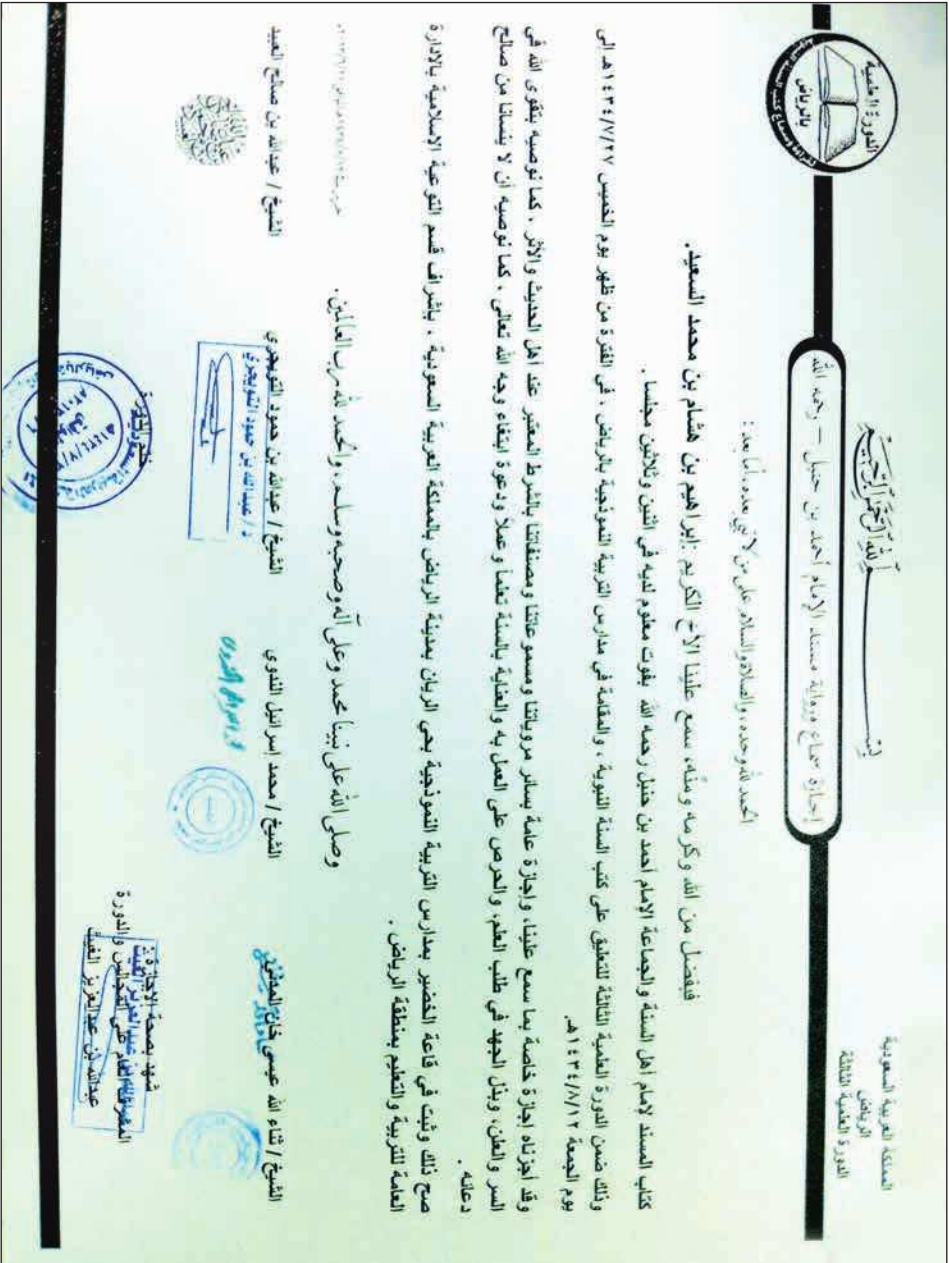 المملكة العربية السعودية
الرياض
الدورة العلمية الثالثة
الدورة العلمية
بالرياض
لقراءة وسماع كتب السنة النبوية
بسم الله الرحمن الرحيم
إجازة سماع ورواية مسند الإمام أحمد بن حنبل – رحمه الله
الحمد لله وحده، والصلاة والسلام على من لا نبي بعده، أما بعد:
فبفضل من الله وكرمه ومنّه، سمع علينا الأخ الكريم إبراهيم بن هشام بن محمد السعيد.
كتاب المسند لإمام أهل السنة والجماعة الإمام أحمد بن حنبل رحمه الله بفوت معلوم لديه في اثنين وثلاثين مجلسا.
وذلك ضمن الدورة العلمية الثالثة للتعليق على كتب السنة النبوية، والمقامة في مدارس التربية النموذجية بالرياض، في الفترة من ظهر يوم الخميس ١٤٣٤/٧/٢٧هـ إلى
يوم الجمعة ١٤٣٤/٨/١٢هـ.
وقد أجزناه إجازة خاصة بما سمع علينا، وإجازة عامة بسائر مروياتنا ومسموعاتنا ومصنفاتنا بالشرط المعتبر عند أهل الحديث والأثر. كما نوصيه بتقوى الله في
السر والعلن، وبذل الجهد في طلب العلم، والحرص على العمل به والعناية بالسنة تعلماً وعملاً ودعوة ابتغاء وجه الله تعالى، كما نوصيه أن لا ينسانا من صالح
دعائه.
صح ذلك وثبت في قاعة الخضير بمدارس التربية النموذجية بحي الريان بمدينة الرياض بالمملكة العربية السعودية، بإشراف قسم التوعية الإسلامية بالإدارة
العامة للتربية والتعليم بمنطقة الرياض.
وصلى الله على نبينا محمد وعلى آله وصحبه وسلم، والحمد لله رب العالمين.
الشيخ / ثناء الله عيسى خان
الشيخ / محمد إسرائيل الندوي
الشيخ / عبدالله بن حمود التويجري
الشيخ / عبدالله بن صالح العبيد
د / عبدالله بن حمود التويجري
شهد بصحة الإجازة:
المشرف العام على المجالس والدورة
عبدالله بن عبدالعزيز الغيث
ختم الدورة